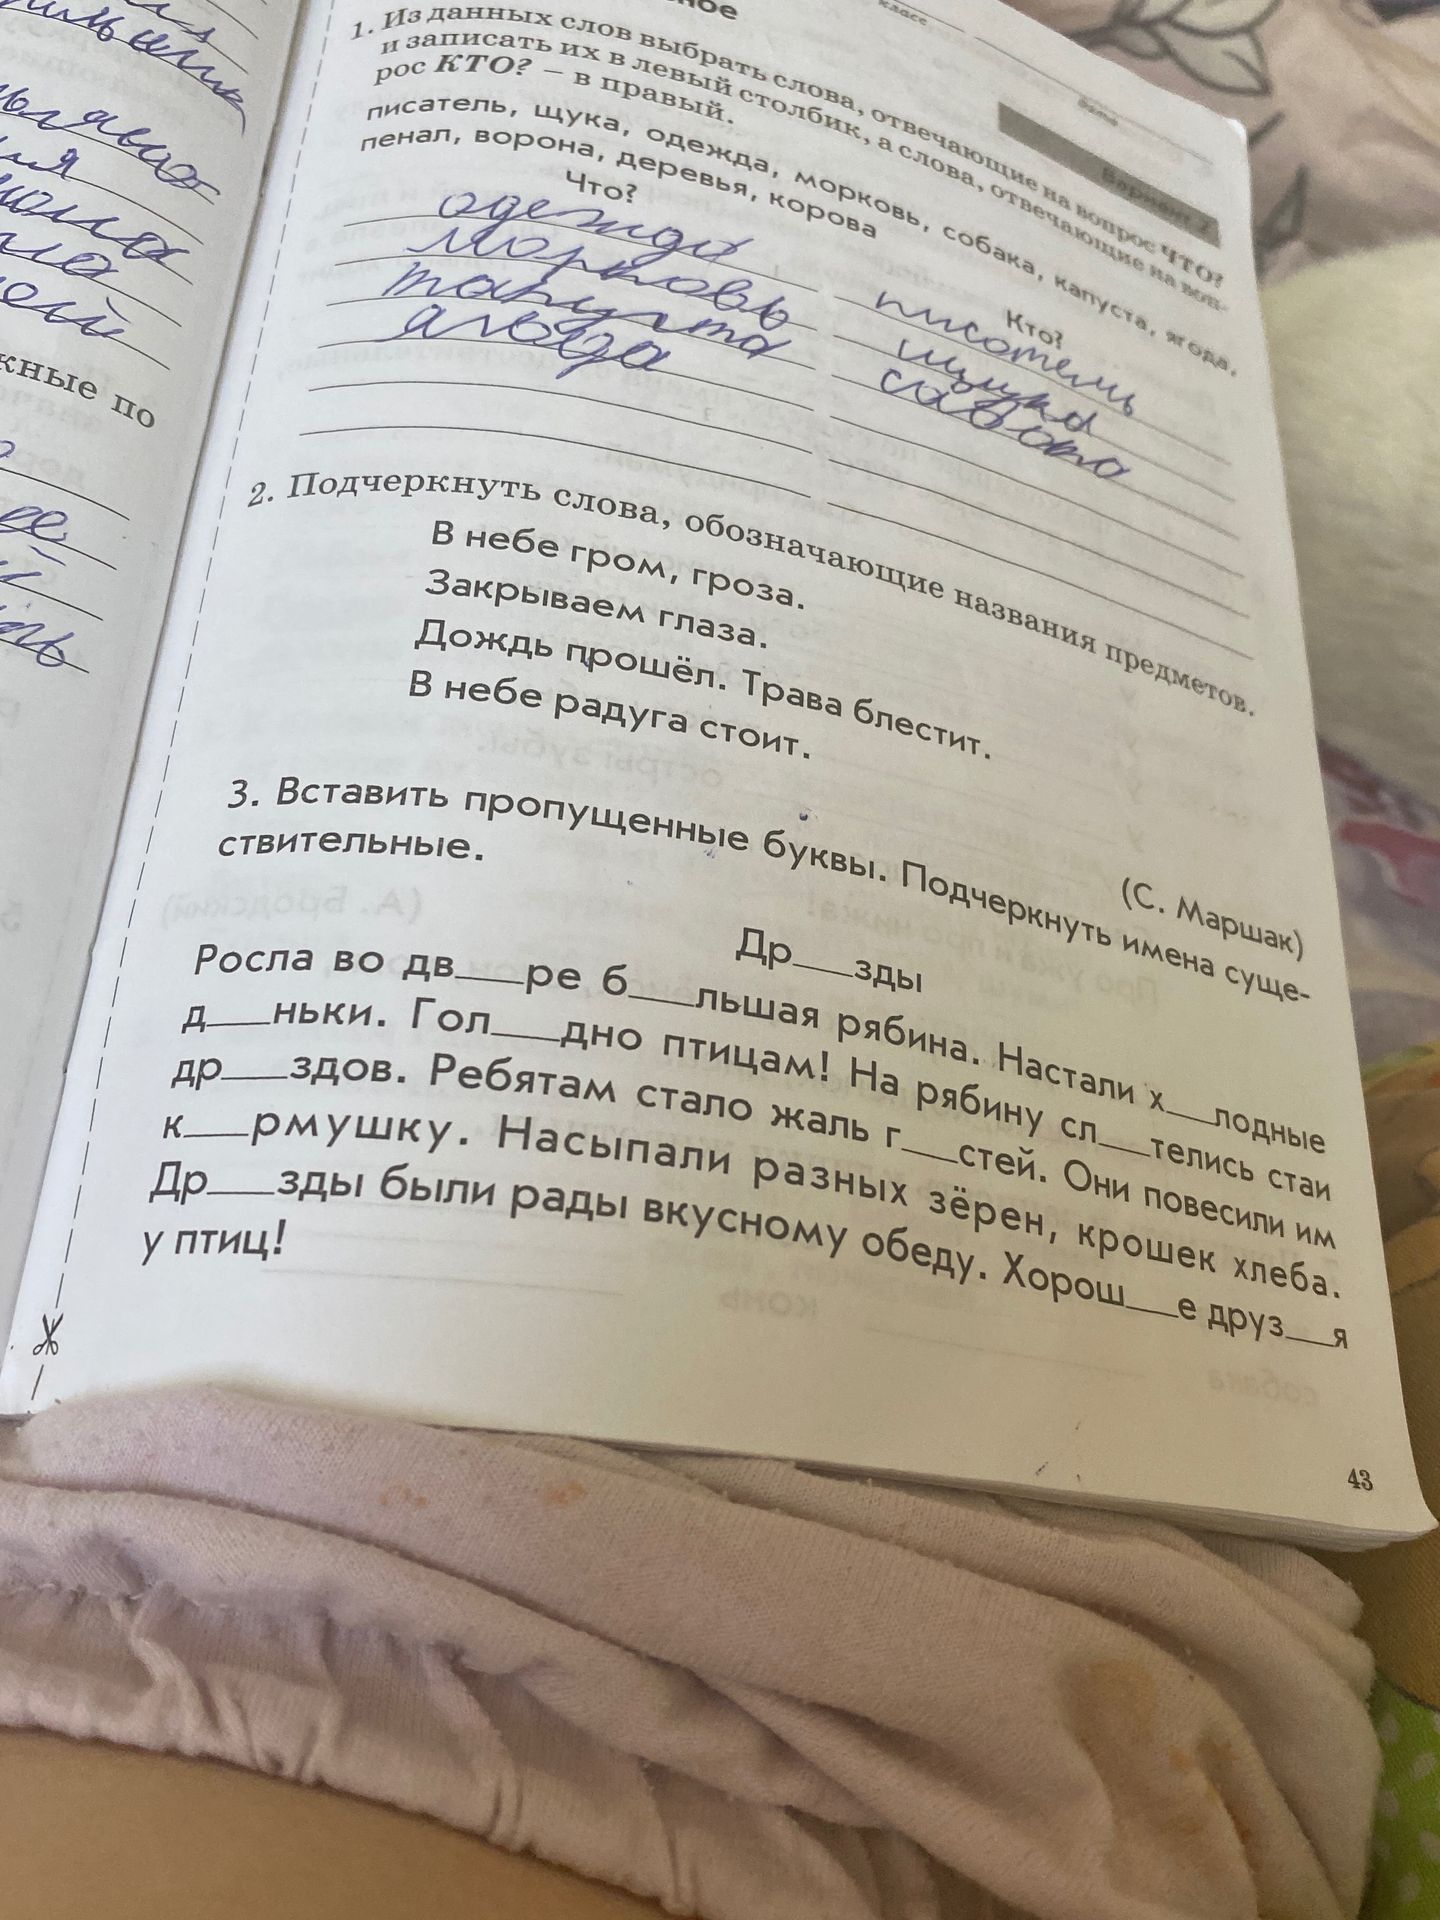 ное
класс
дата
Вариант 2
1. Из данных слов выбрать слова, отвечающие на вопрос ЧТО?
и записать их в левый столбик, а слова, отвечающие на воп-
рос КТО? – в правый.
писатель, щука, одежда, морковь, собака, капуста, ягода,
пенал, ворона, деревья, корова
Что?
Кто?
одежда
писатель
морковь
щука
капуста
собака
ягода
2. Подчеркнуть слова, обозначающие названия предметов.
В небе гром, гроза.
Закрываем глаза.
Дождь прошёл. Трава блестит.
В небе радуга стоит.
(С. Маршак)
3. Вставить пропущенные буквы. Подчеркнуть имена суще-
ствительные.
Др___зды
Росла во дв___ре б___льшая рябина. Настали х___лодные
д___ньки. Гол___дно птицам! На рябину сл___телись стаи
др___здов. Ребятам стало жаль г___стей. Они повесили им
к___рмушку. Насыпали разных зёрен, крошек хлеба.
Др___зды были рады вкусному обеду. Хорош___е друз___я
у птиц!
43
жные по